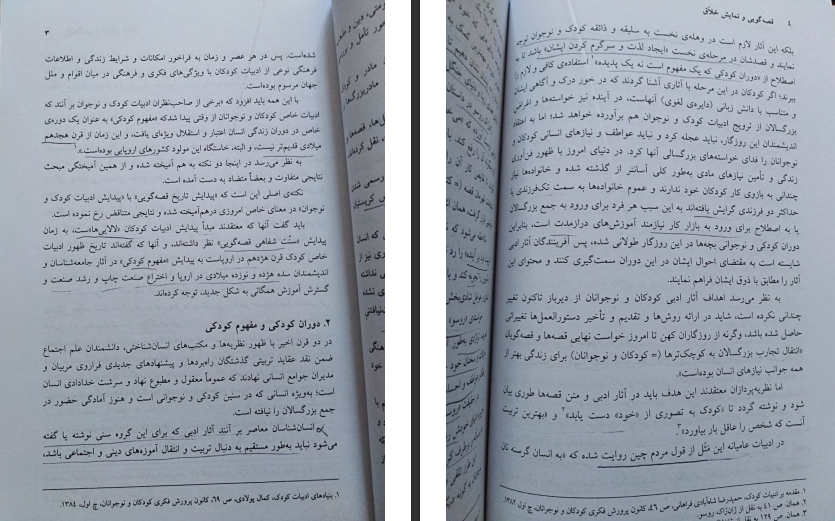 ۳
شده‌است. پس در هر عصر و زمان به فراخور امکانات و شرایط زندگی و اطلاعات
فرهنگی نوعی از ادبیات کودکان با ویژگی‌های فکری و فرهنگی در میان اقوام و ملل
جهان مرسوم بوده‌است.
با این همه باید افزود که «برخی از صاحب‌نظران ادبیات کودک و نوجوان بر آنند که
ادبیات خاص کودکان و نوجوانان از وقتی پیدا شدکه «مفهوم کودکی» به عنوان یک دوره‌ی
خاص در دوران زندگی انسان اعتبار و استقلال ویژه‌ای یافت، و این زمان از قرن هجدهم
میلادی قدیم‌تر نیست، و البته، خاستگاه این مولود کشورهای اروپایی بوده‌است».۱
به نظر می‌رسد در اینجا دو نکته به هم آمیخته شده و از همین آمیختگی مبحث
نتایجی متفاوت و بعضاً متضاد به دست آمده است.
نکته‌ی اصلی این است که «پیدایش تاریخ قصه‌گویی» با «پیدایش ادبیات کودک و
نوجوان» در معنای خاص امروزی درهم‌آمیخته شده و نتایجی متناقض رخ نموده است.
باید گفت آنها که معتقدند مبدأ پیدایش ادبیات کودکان «لالایی‌ها»ست، به زمان
پیدایش «سنّت شفاهی قصه‌گویی» نظر داشته‌اند، و آنها که گفته‌اند تاریخ ظهور ادبیات
خاص کودک قرن هژدهم در اروپاست به پیدایش «مفهوم کودکی» در آثار جامعه‌شناسان و
اندیشمندان سده هژده و نوزده میلادی در اروپا و اختراع صنعت چاپ و رشد صنعت و
گسترش آموزش همگانی به شکل جدید، توجه کرده‌اند.
۲. دوران کودکی و مفهوم کودکی
در دو قرن اخیر با ظهور نظریه‌ها و مکتب‌های انسان‌شناختی، دانشمندان علم اجتماع
ضمن نقد عقاید تربیتی گذشتگان راه‌بردها و پیشنهادهای جدیدی فراروی مربیان و
مدیران جوامع انسانی نهادند که عموماً معقول و مطبوع نهاد و سرشت خدادادی انسان
است؛ به‌ویژه انسانی که در سنین کودکی و نوجوانی است و هنوز آمادگی حضور در
جمع بزرگسالان را نیافته است.
انسان‌شناسان معاصر بر آنند آثار ادبی که برای این گروه سنی نوشته یا گفته
می‌شود نباید به‌طور مستقیم به دنبال تربیت و انتقال آموزه‌های دینی و اجتماعی باشد،
۱. بنیادهای ادبیات کودک، کمال پولادی، ص ۶۹، کانون پرورش فکری کودکان و نوجوانان، چ اول، ۱۳۸۴.
۴ قصه‌گویی و نمایش خلاّق
بلکه این آثار لازم است در وهله‌ی نخست به سلیقه و ذائقه کودک و نوجوان توجه
نمایند و قصدشان در مرحله‌ی نخست «ایجاد لذت و سرگرم کردن ایشان» باشد تا به
اصطلاح از «دوران کودکی که یک مفهوم است نه یک پدیده» استفاده‌ی کافی و لازم را
ببرند؛ اگر کودکان در این مرحله با آثاری آشنا گردند که در خور درک و آگاهی ایشان
و متناسب با دانش زبانی (دایره‌ی لغوی) آنهاست، در آینده نیز خواسته‌ها و اغراض
بزرگسالان از ترویج ادبیات کودک و نوجوان هم برآورده خواهد شد؛ اما به اعتقاد
اندیشمندان این روزگار، نباید عجله کرد و نباید عواطف و نیازهای انسانی کودکان و
نوجوانان را فدای خواسته‌های بزرگسالی آنها کرد. در دنیای امروز با ظهور فن‌آوری
زندگی و تأمین نیازهای مادی به‌طور کلی آسانتر از گذشته شده و خانواده‌ها نیاز
چندانی به بازوی کار کودکان خود ندارند و عموم خانواده‌ها به سمت تک‌فرزندی یا
حداکثر دو فرزندی گرایش یافته‌اند به این سبب هر فرد برای ورود به جمع بزرگسالان
یا به اصطلاح برای ورود به بازار کار نیازمند آموزش‌های درازمدت است، بنابراین
دوران کودکی و نوجوانی بچه‌ها در این روزگار طولانی شده، پس آفرینندگان آثار ادبی
شایسته است به مقتضای احوال ایشان در این دوران سمت‌گیری کنند و محتوای این
آثار را مطابق با ذوق ایشان فراهم نمایند.
به نظر می‌رسد اهداف آثار ادبی کودکان و نوجوانان از دیرباز تاکنون تغییر
چندانی نکرده است، شاید در ارائه روش‌ها و تقدیم و تأخیر دستورالعمل‌ها تغییراتی
حاصل شده باشد، وگرنه از روزگاران کهن تا امروز خواست نهایی قصه‌ها و قصه‌گویان
«انتقال تجارب بزرگسالان به کوچک‌ترها (= کودکان و نوجوانان) برای زندگی بهتر از
همه جوانب نیازهای انسان بوده‌است».
اما نظریه‌پردازان معتقدند این هدف باید در آثار ادبی و متن قصه‌ها طوری بیان
شود و نوشته گردد تا «کودک به تصوری از «خود» دست یابد»۲ و «بهترین تربیت
آنست که شخص را عاقل بار بیاورد».۳
در ادبیات عامیانه این مَثَل از قول مردم چین روایت شده که «به انسان گرسنه نان
۱. مقدمه بر ادبیات کودک، حمیدرضا شاه‌آبادی فراهانی، ص ۴۶، کانون پرورش فکری کودکان و نوجوانان، چ اول، ۱۳۸۲.
۲. همان، ص ۴۱ به نقل از ژان‌ژاک روسو.
۳. همان، ص ۱۲۹ به نقل از